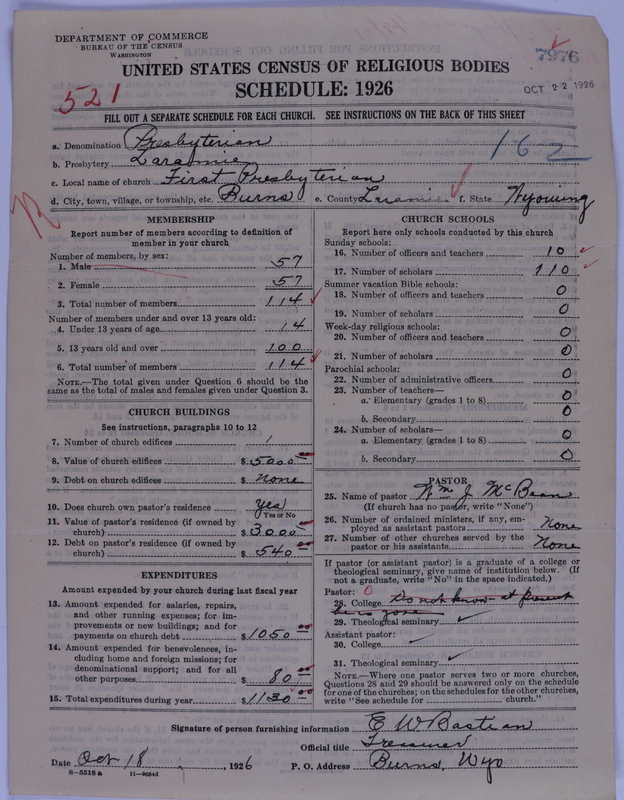 DEPARTMENT OF COMMERCE
BUREAU OF THE CENSUS
WASHINGTON
7976
UNITED STATES CENSUS OF RELIGIOUS BODIES
SCHEDULE: 1926
OCT 22 1926
521
FILL OUT A SEPARATE SCHEDULE FOR EACH CHURCH. SEE INSTRUCTIONS ON THE BACK OF THIS SHEET
a. Denomination Presbyterian
162
b. Presbytery Laramie
c. Local name of church First Presbyterian
d. City, town, village, or township, etc. Burns e. County Laramie f. State Wyoming
MEMBERSHIP
Report number of members according to definition of member in your church
Number of members, by sex:
1. Male 57
2. Female 57
3. Total number of members 114
Number of members under and over 13 years old:
4. Under 13 years of age 14
5. 13 years old and over 100
6. Total number of members 114
NOTE.—The total given under Question 6 should be
same as the total of males and females given under Question 3.
CHURCH BUILDINGS
See instructions, paragraphs 10 to 12
7. Number of church edifices 1
8. Value of church edifices $5000 00
9. Debt on church edifices $ None
10. Does church own pastor's residence yes
Yes or No
11. Value of pastor's residence (if owned by
church) $3000 00
12. Debt on pastor's residence (if owned by
church) $540 00
EXPENDITURES
Amount expended by your church during last fiscal year
13. Amount expended for salaries, repairs,
and other running expenses; for im-
provements or new buildings; and for
payments on church debt $1050 00
14. Amount expended for benevolences, in-
cluding home and foreign missions; for
denominational support; and for all
other purposes $80 00
15. Total expenditures during year $1130 00
CHURCH SCHOOLS
Report here only schools conducted by this church
Sunday schools:
16. Number of officers and teachers 10
17. Number of scholars 110
Summer vacation Bible schools:
18. Number of officers and teachers 0
19. Number of scholars 0
Week-day religious schools:
20. Number of officers and teachers 0
21. Number of scholars 0
Parochial schools:
22. Number of administrative officers 0
23. Number of teachers—
a. Elementary (grades 1 to 8) 0
b. Secondary 0
24. Number of scholars—
a. Elementary (grades 1 to 8) 0
b. Secondary 0
PASTOR
25. Name of pastor Wm J McBean
(If church has no pastor, write "None")
26. Number of ordained ministers, if any, em-
ployed as assistant pastors None
27. Number of other churches served by the
pastor or his assistants None
If pastor (or assistant pastor) is a graduate of a college or
theological seminary, give name of institution below. (If
not a graduate, write "No" in the space indicated.)
Pastor: 0
28. College Do not know at present
gone
29. Theological seminary
Assistant pastor:
30. College
31. Theological seminary
NOTE.—Where one pastor serves two or more churches,
Questions 28 and 29 should be answered only on the schedule
for one of the churches; on the schedules for the other churches,
write "See schedule for church."
Signature of person furnishing information E W Bastian
Official title Treasurer
Date Oct 18, 1926 P. O. Address Burns, Wyo
8—5518 a 11—9554d